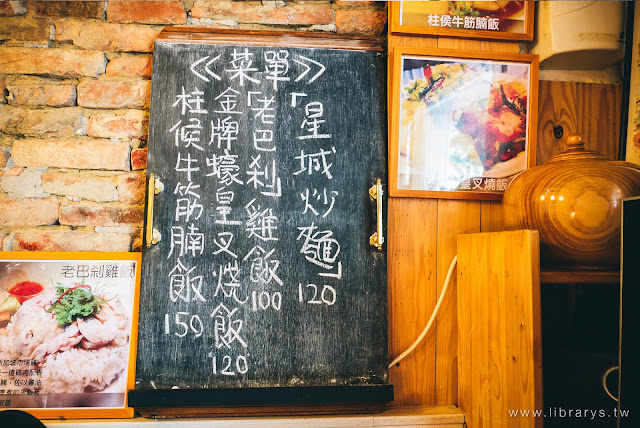 ≪菜單≫
「星城炒麵」120
「老巴剎」雞飯100
金牌蠔皇叉燒飯120
柱候牛筋腩飯150
柱侯牛筋腩飯
皇叉燒飯
老巴剎雞飯
www.librarys.tw